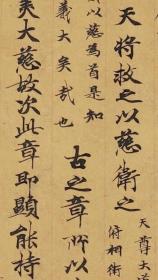 天尊大慈
俯相衛
天將救之以慈衛之
以慈為首是知
義大矣哉也
古之章所以
矣大慈故次此章即顯能持